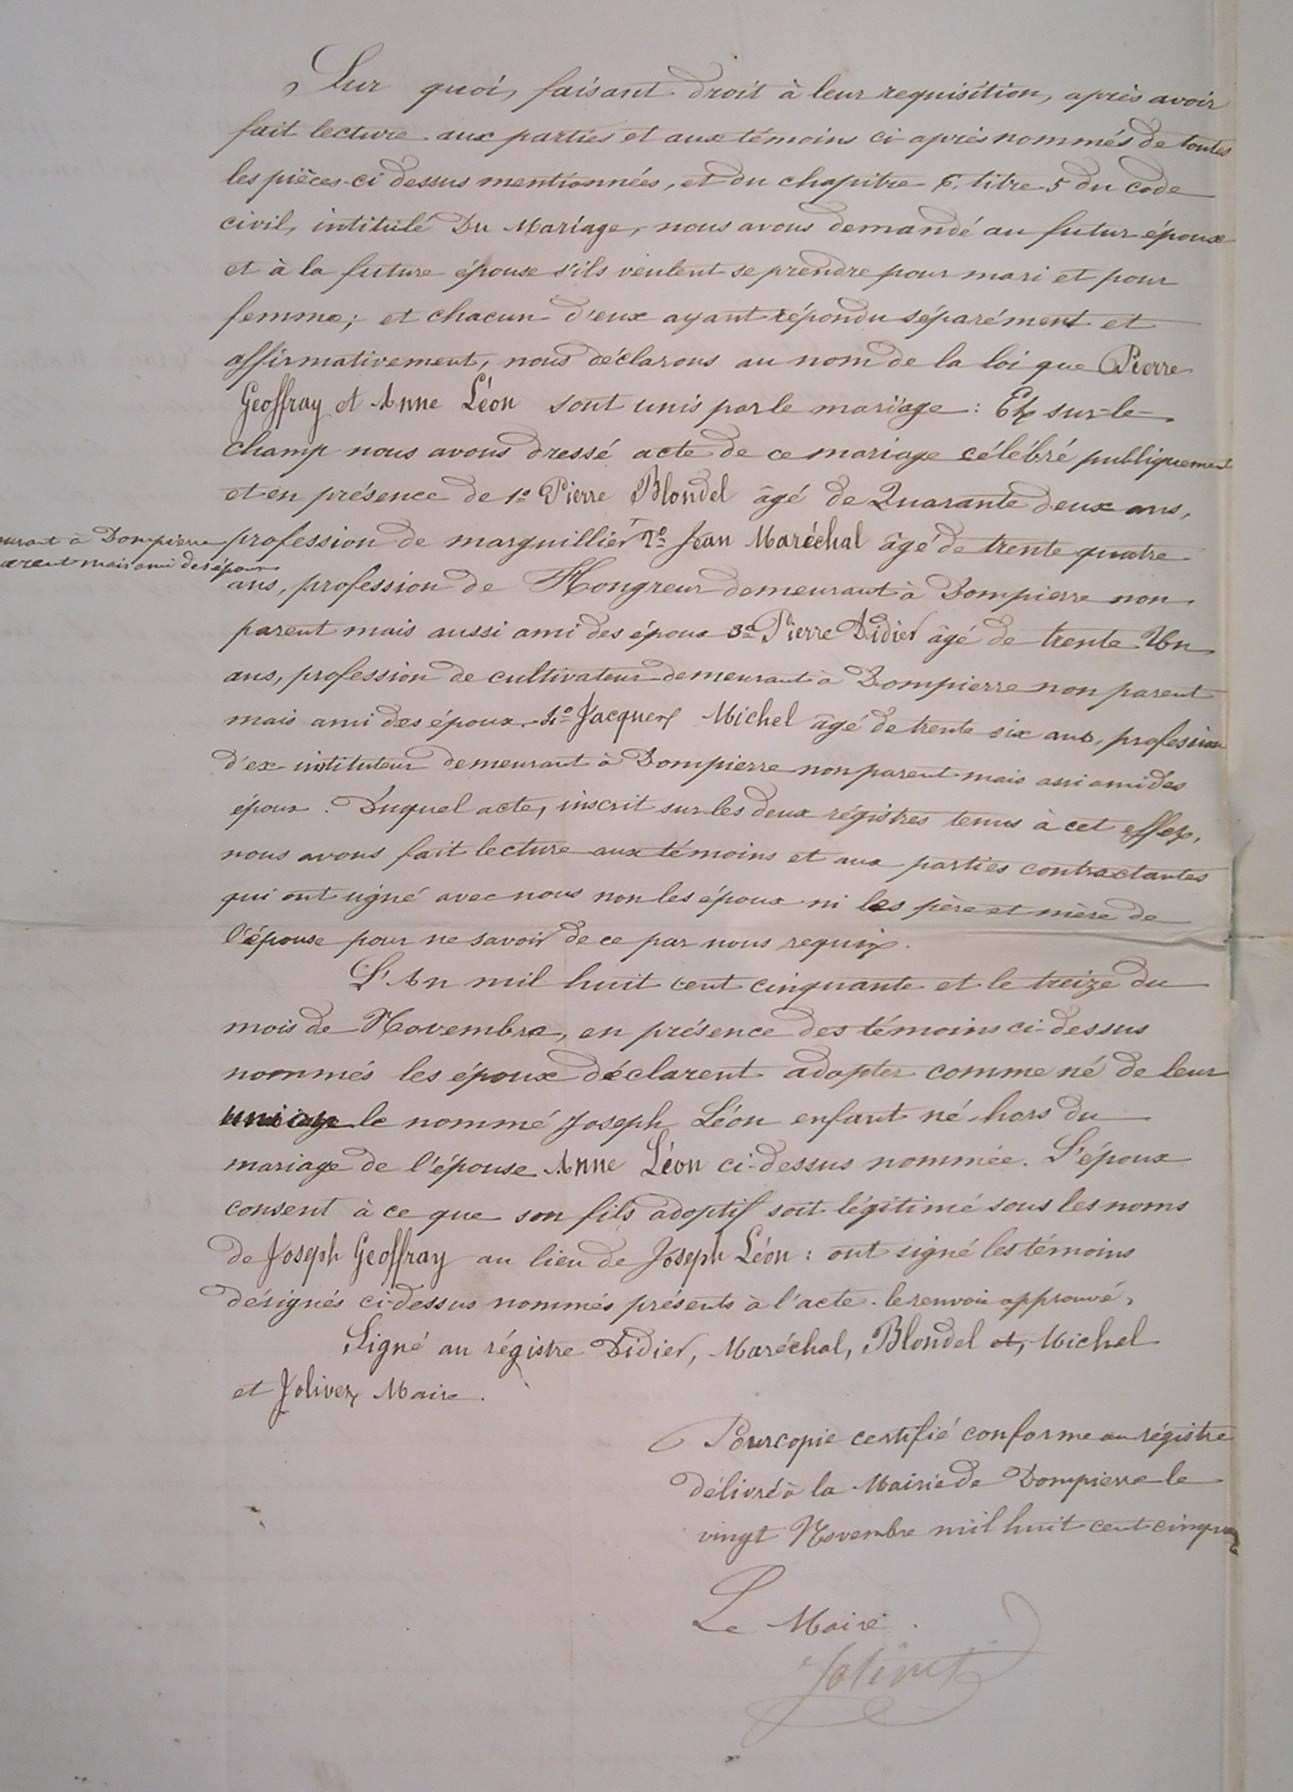 Sur quoi, faisant droit à leur requisition, après avoir
fait lecture aux parties et aux témoins ci après nommés de toutes
les pièces ci dessus mentionnées, et du chapitre 6. titre 5 du code
civil, intitulé Du Mariage, nous avons demandé au futur époux
et à la future épouse s'ils veulent se prendre pour mari et pour
femme; et chacun d'eux ayant répondu séparément et
affirmativement, nous déclarons au nom de la loi que Pierre
Geoffray et Anne Léon sont unis par le mariage: Et sur-le-
champ nous avons dressé acte de ce mariage célébré publiquement
et en présence de 1º Pierre Blondel âgé de Quarante deux ans,
profession de marguillier 2º Jean Maréchal âgé de trente quatre
à Dompierre
mais ami des époux
ans, profession de Hongreur demeurant à Dompierre non
parent mais aussi ami des époux 3º Pierre Didier âgé de trente Un
ans, profession de cultivateur demeurant à Dompierre non parent
mais ami des époux 4º Jacques Michel âgé de trente six ans, profession
d'ex instituteur demeurant à Dompierre non parent mais ami des
époux. Duquel acte, inscrit sur les deux régistres tenus à cet effet,
nous avons fait lecture aux témoins et aux parties contractantes
qui ont signé avec nous non les époux ni les père et mère de
l'épouse pour ne savoir de ce par nous requis.
L'An mil huit cent cinquante et le treize du
mois de Novembre, en présence des témoins ci-dessus
nommés les époux déclarent adopter comme né de leur
mariage le nommé Joseph Léon enfant né hors du
mariage de l'épouse Anne Léon ci-dessus nommée. L'époux
consent à ce que son fils adoptif soit légitimé sous les noms
de Joseph Geoffray au lieu de Joseph Léon: ont signé les témoins
désignés ci-dessus nommés présents à l'acte. le renvoi approuvé,
Signé au régistre Didier, Maréchal, Blondel et, Michel
et Jolivet Maire.
Pour copie certifié conforme au régistre
délivré à la Mairie de Dompierre le
vingt Novembre mil huit cent cinquante
Le Maire.
Jolivet